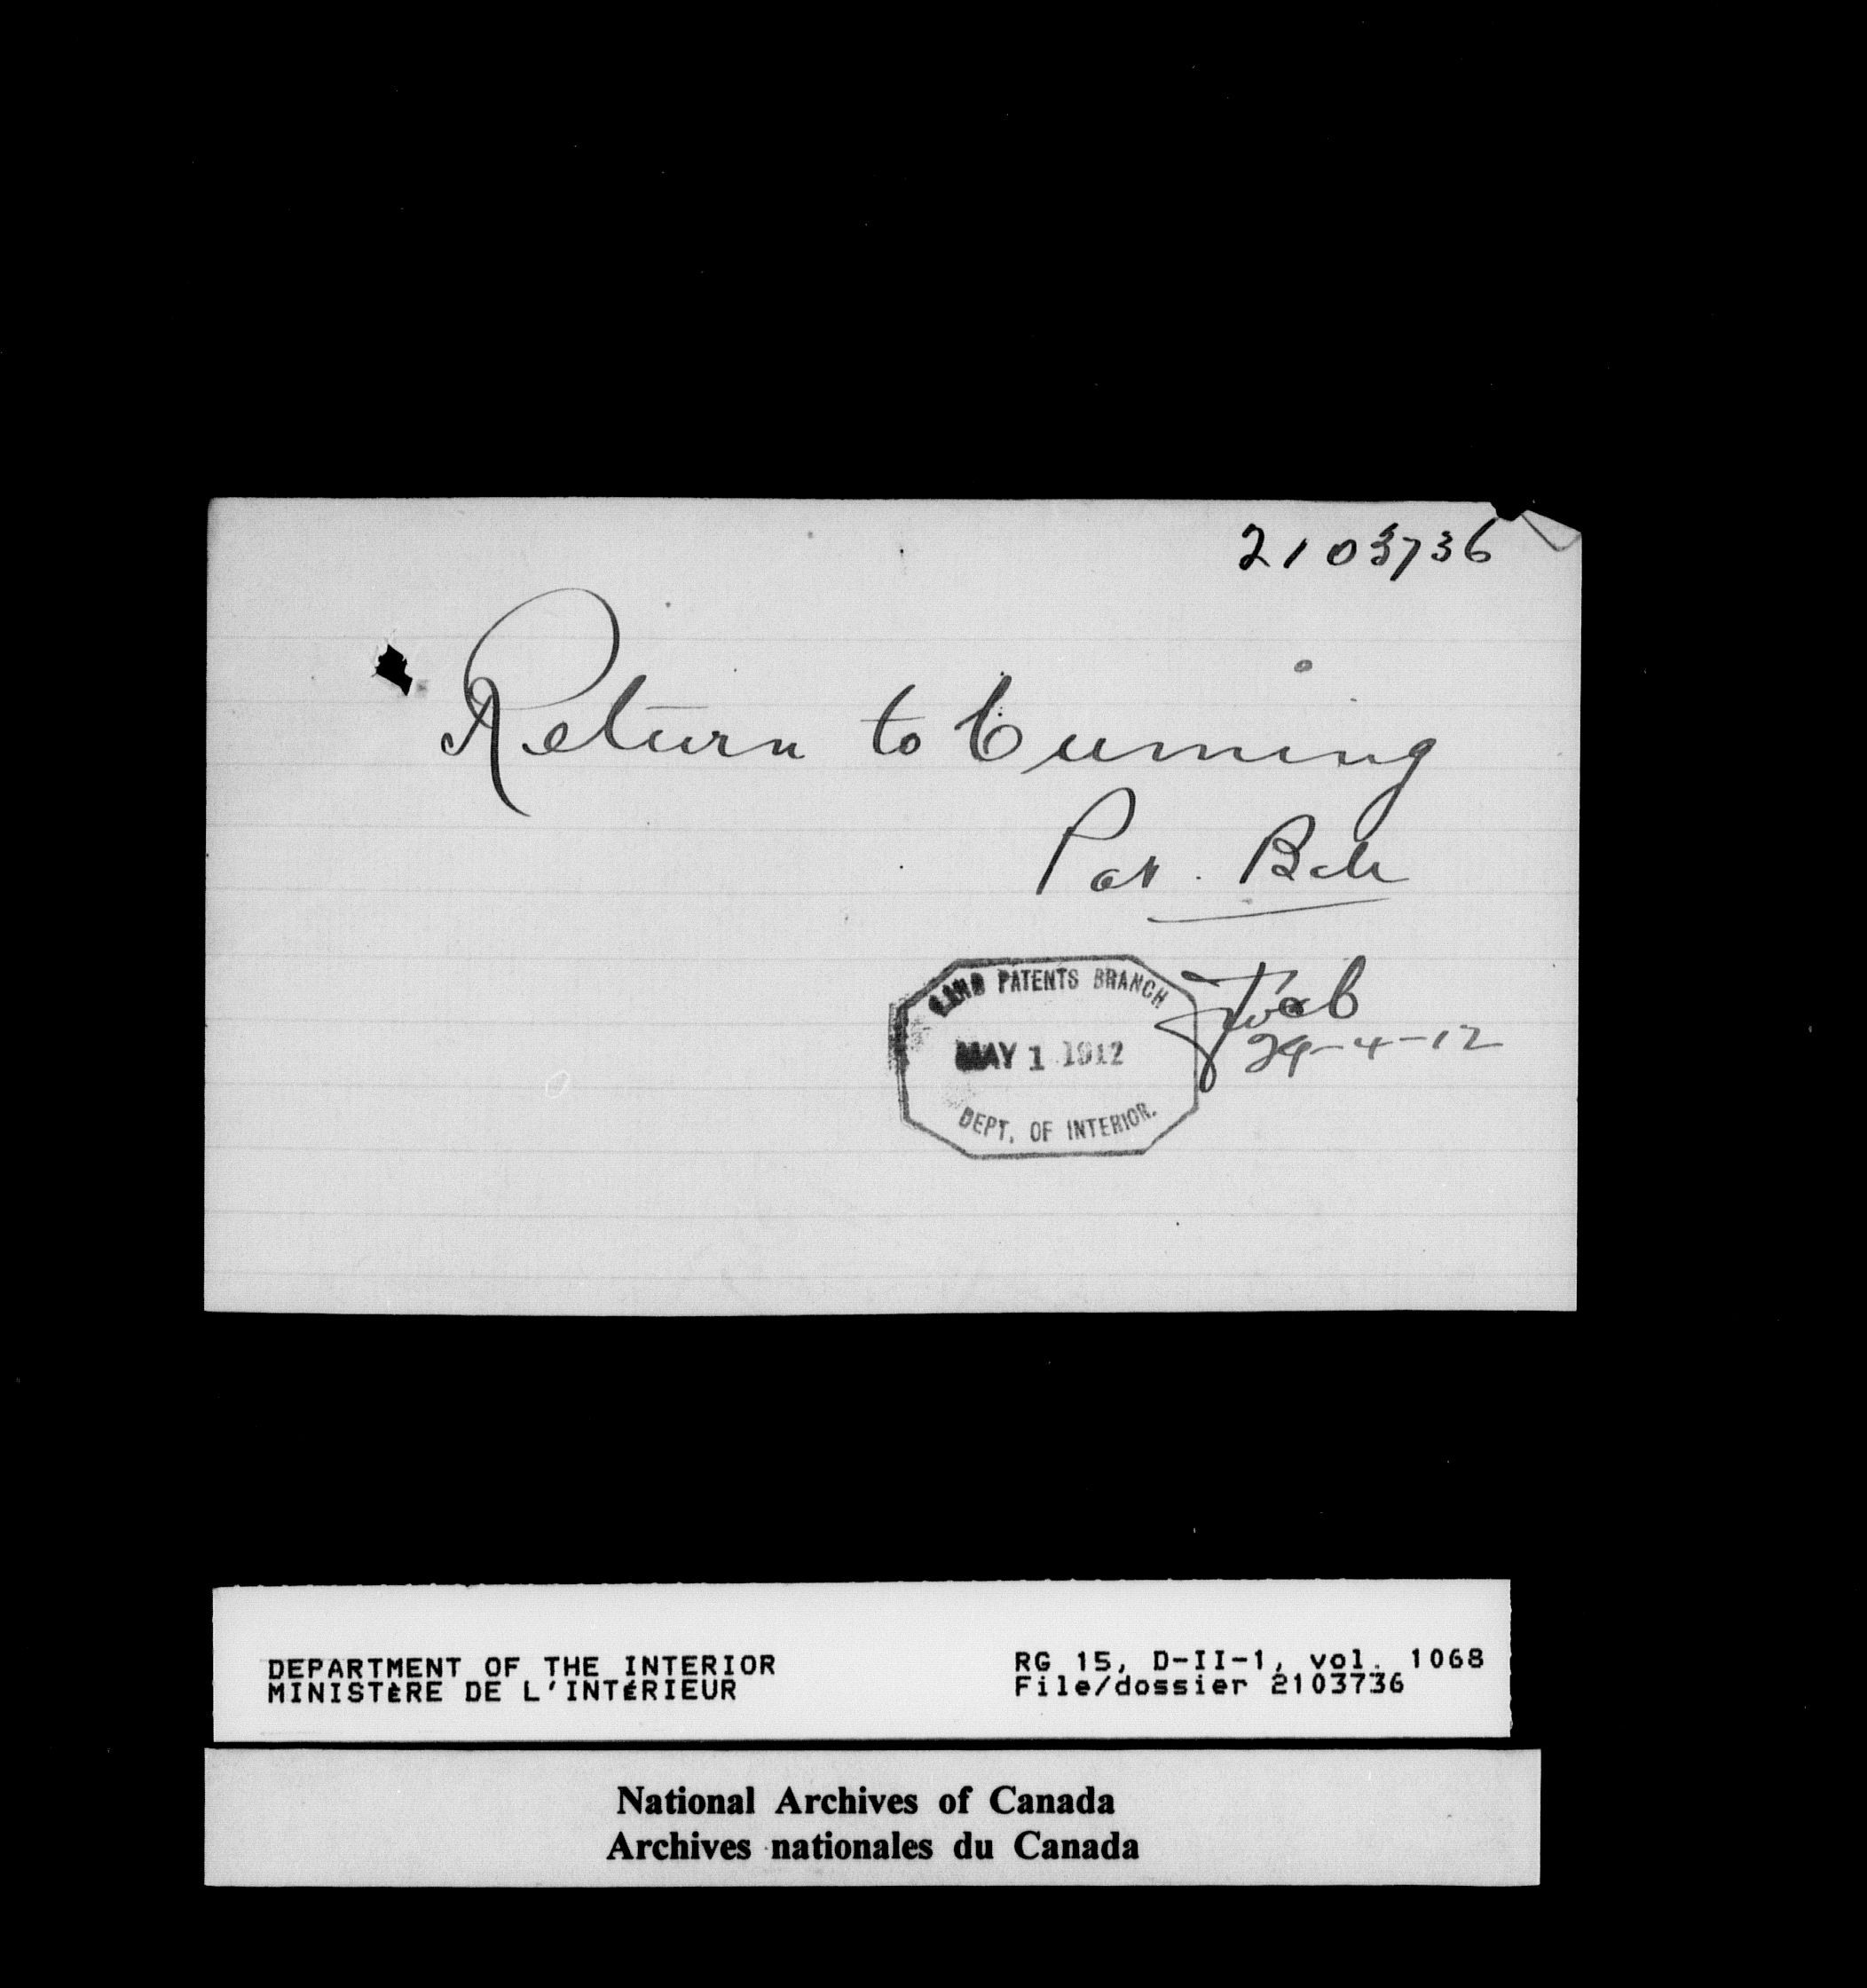 2103736
Return to Cuming
Pat. Bch
29-4-12
LAND PATENTS BRANCH
MAY 1 1912
DEPT. OF INTERIOR.
DEPARTMENT OF THE INTERIOR
MINISTÈRE DE L'INTÉRIEUR
RG 15, D-II-1, vol. 1068
File/dossier 2103736
National Archives of Canada
Archives nationales du Canada